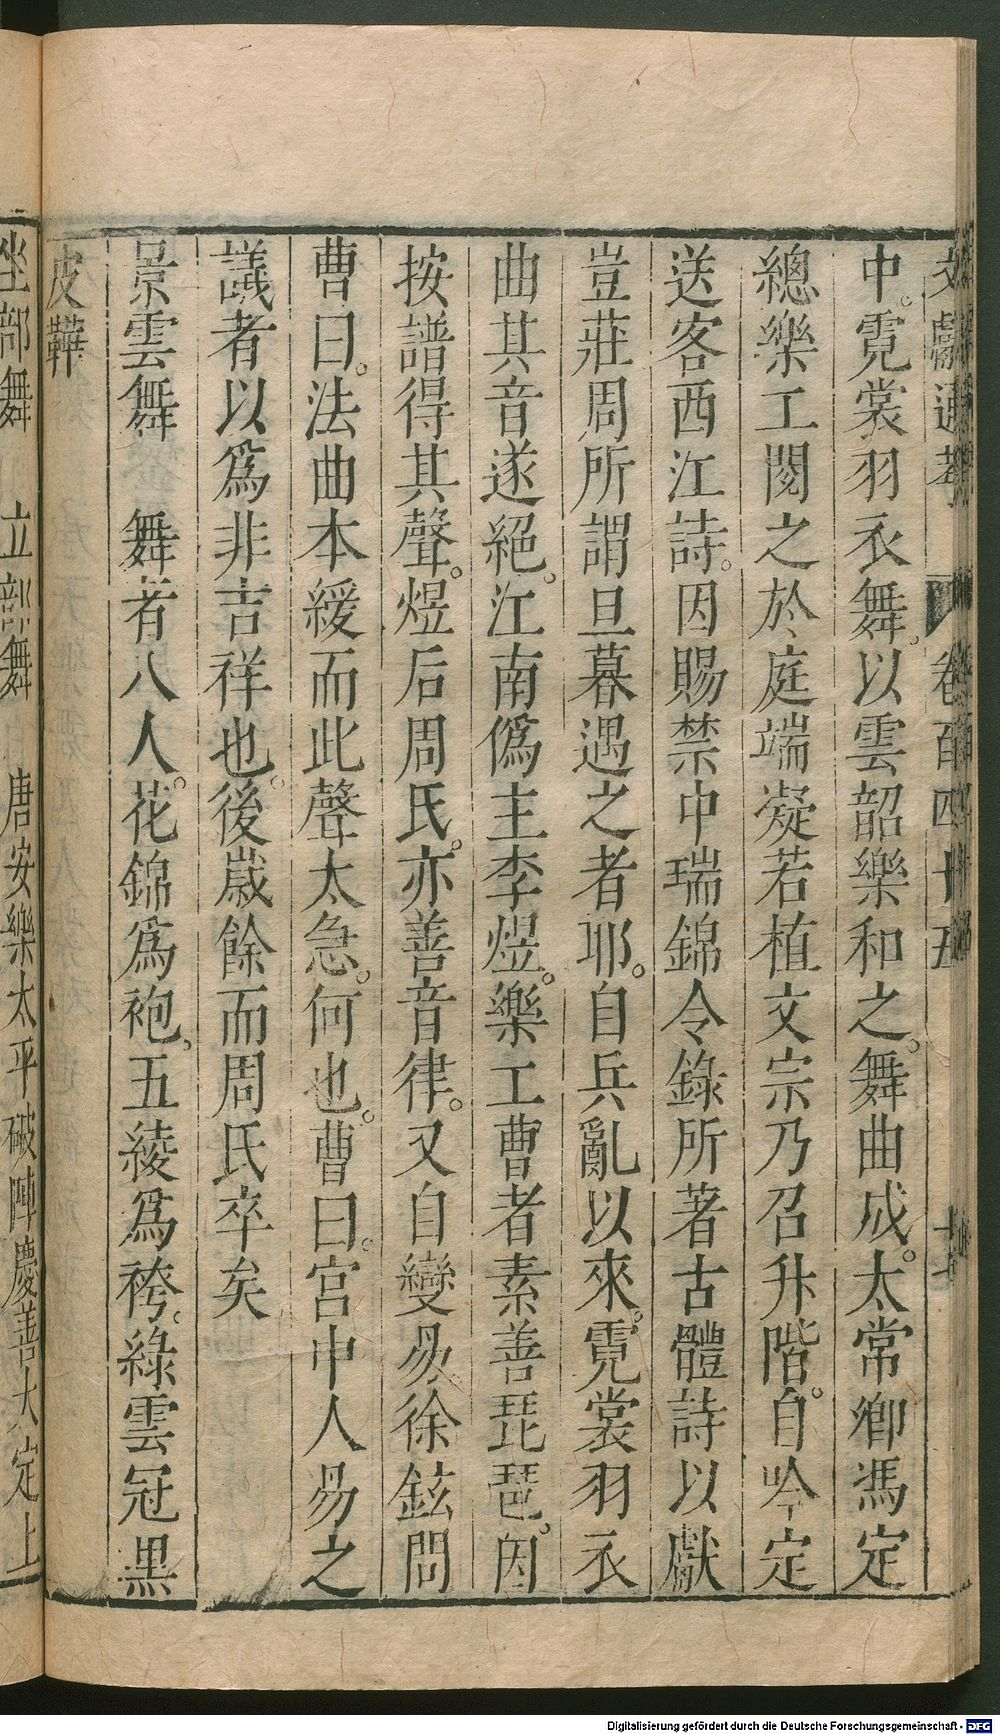 文獻通考 卷百四十五
中。霓裳羽衣舞。以雲韶樂和之。舞曲成。太常卿馮定
總樂工閱之於庭端凝若植文宗乃召升階。自吟定
送客西江詩。因賜禁中瑞錦令錄所著古體詩以獻
豈莊周所謂旦暮遇之者耶。自兵亂以來。霓裳羽衣
曲其音遂絕。江南僞主李煜。樂工曹者素善琵琶。因
按譜得其聲。煜后周氏。亦善音律。又自變易徐鉉問
曹曰。法曲本緩而此聲太急。何也。曹曰。宫中人易之
議者以爲非吉祥也。後歲餘而周氏卒矣
景雲舞 舞者八人。花錦爲袍。五綾爲袴。綠雲冠黑
皮鞾
坐部舞 立部舞 唐安樂太平破陣慶善大定上
Digitalisierung gefördert durch die Deutsche Forschungsgemeinschaft - DFG